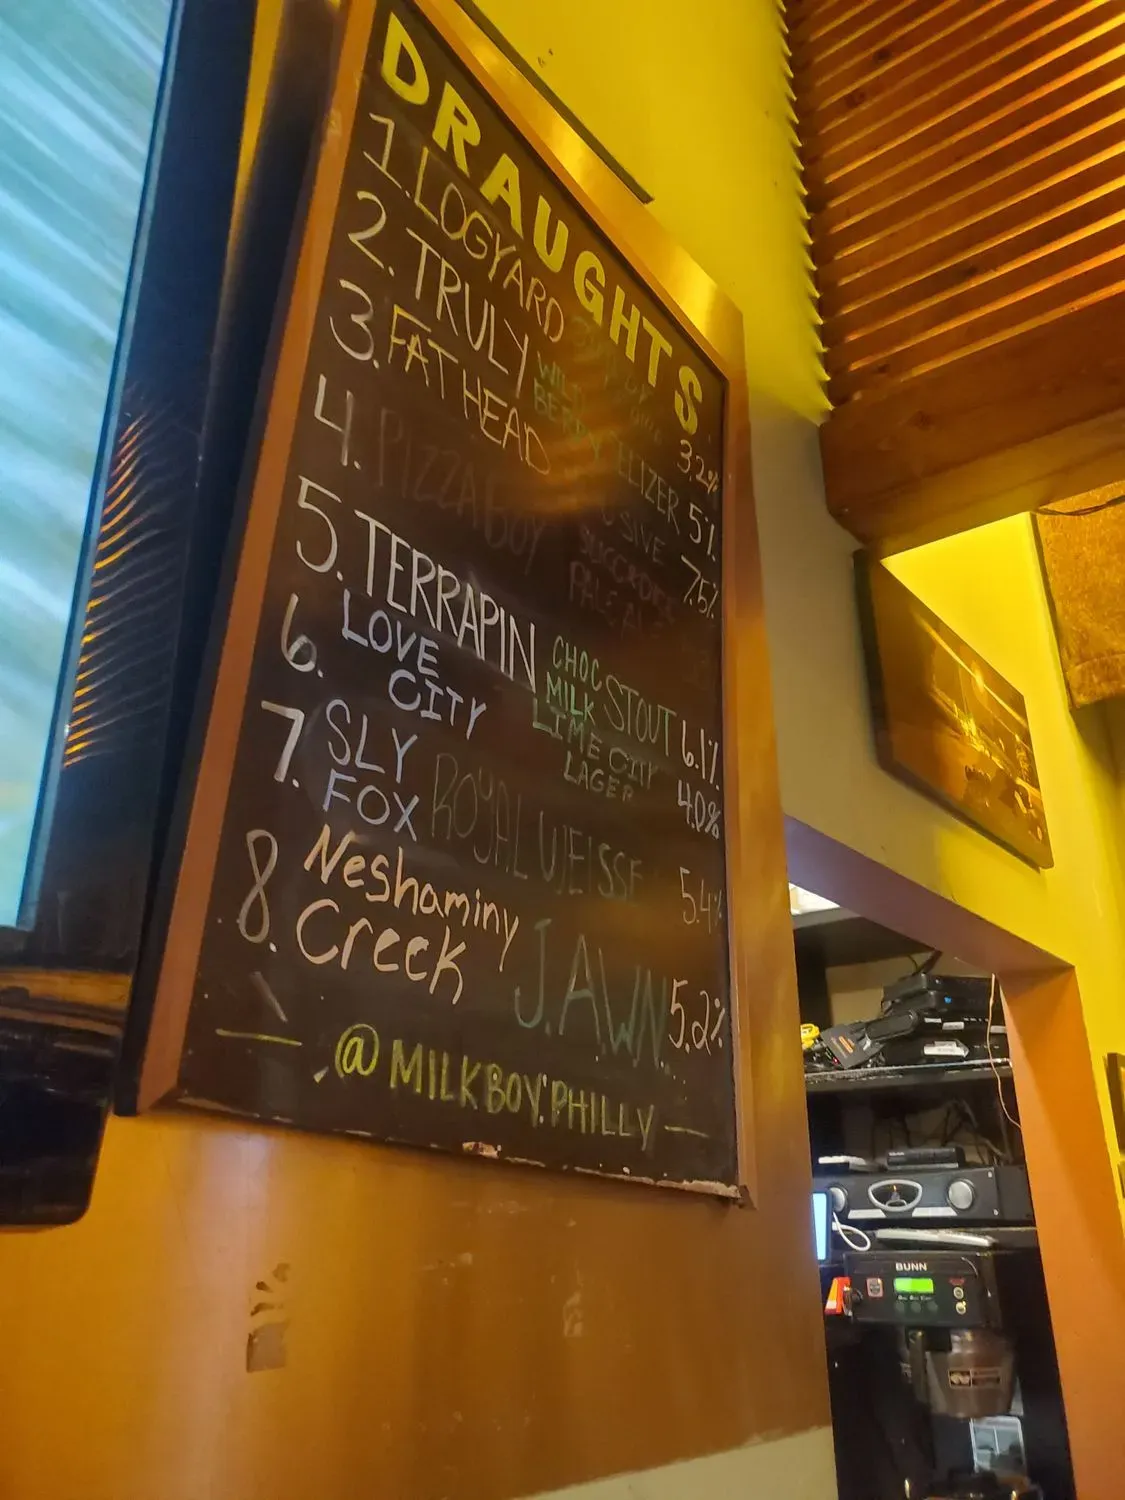 DRAUGHTS
1. LOGYARD 3.2%
2. TRULY WILD BERRY SELTZER 5%
3. FAT HEAD 7.5%
4. PIZZA BOY PALE ALE
5. TERRAPIN CHOC MILK STOUT 6.1%
6. LOVE CITY LIME CITY LAGER 4.0%
7. SLY FOX ROYAL WEISSE 5.4%
8. Neshaminy Creek J.AWN 5.2%
@MILKBOY.PHILLY
BUNN